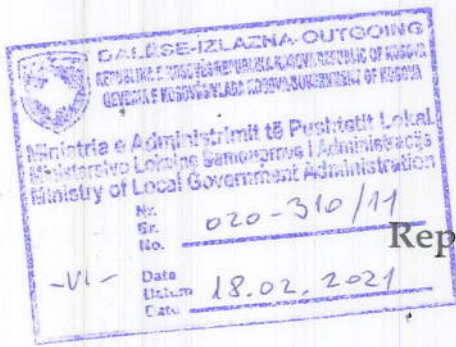 DALËSE-IZLAZNA-OUTGOING
REPUBLIKA E KOSOVËS/REPUBLIKA KOSOVA/REPUBLIC OF KOSOVA
QEVERIA E KOSOVËS/VLADA KOSOVA/GOVERNMENT OF KOSOVA
Ministria e Administrimit të Pushtetit Lokal
Ministarstvo Lokalne Samouprave i Administracije
Ministry of Local Government Administration
Nr.
Br.
No.
020-310/11
Rep
-VI-
Data
Datum
Date
18.02.2021